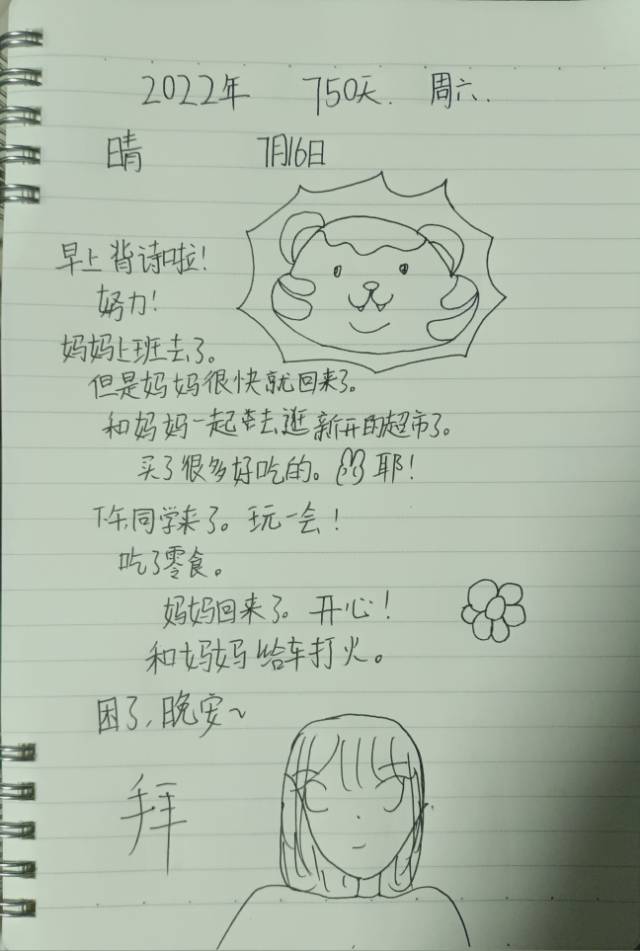 2022年 750天. 周六.
晴 7月16日
早上背诗啦!
努力!
妈妈上班去了。
但是妈妈很快就回来了。
和妈妈一起去逛新开的超市了。
买了很多好吃的。耶!
下午,同学来了。玩一会!
吃了零食。
妈妈回来了。开心!
和妈妈给车打火。
困了,晚安~
拜